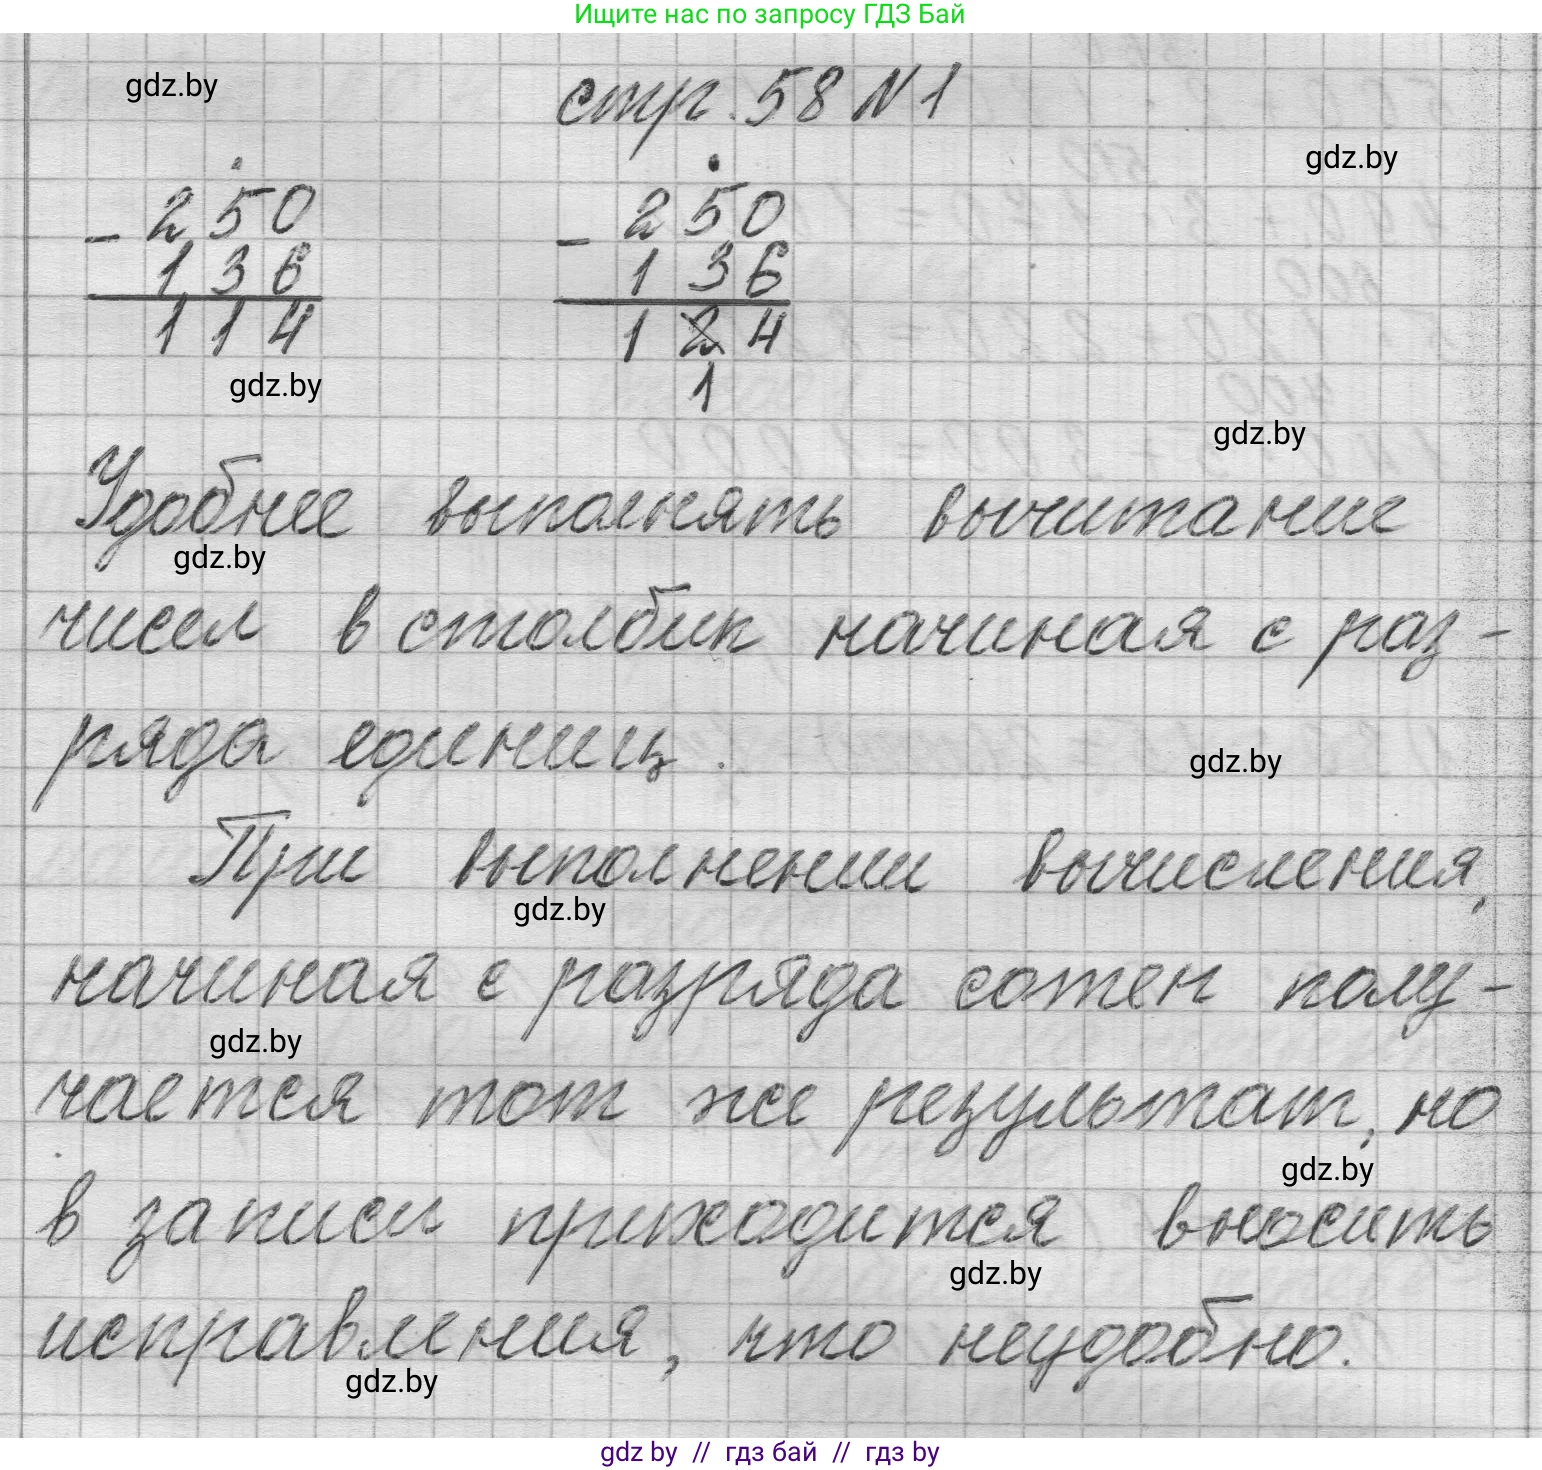 Ищите нас по запросу ГДЗ Бай
gdz.by
стр. 58 N 1
gdz.by
- 250
136
114
- 250
136
124
1
gdz.by
gdz.by
Удобнее выполнять вычитание
gdz.by
чисел в столбик начиная с раз-
ряда единиц.
gdz.by
При выполнении вычисления,
gdz.by
начиная с разряда сотен полу-
gdz.by
чается тот же результат, но
gdz.by
в записи приходится вносить
gdz.by
исправления, что неудобно.
gdz.by
gdz by // гдз бай // гдз by